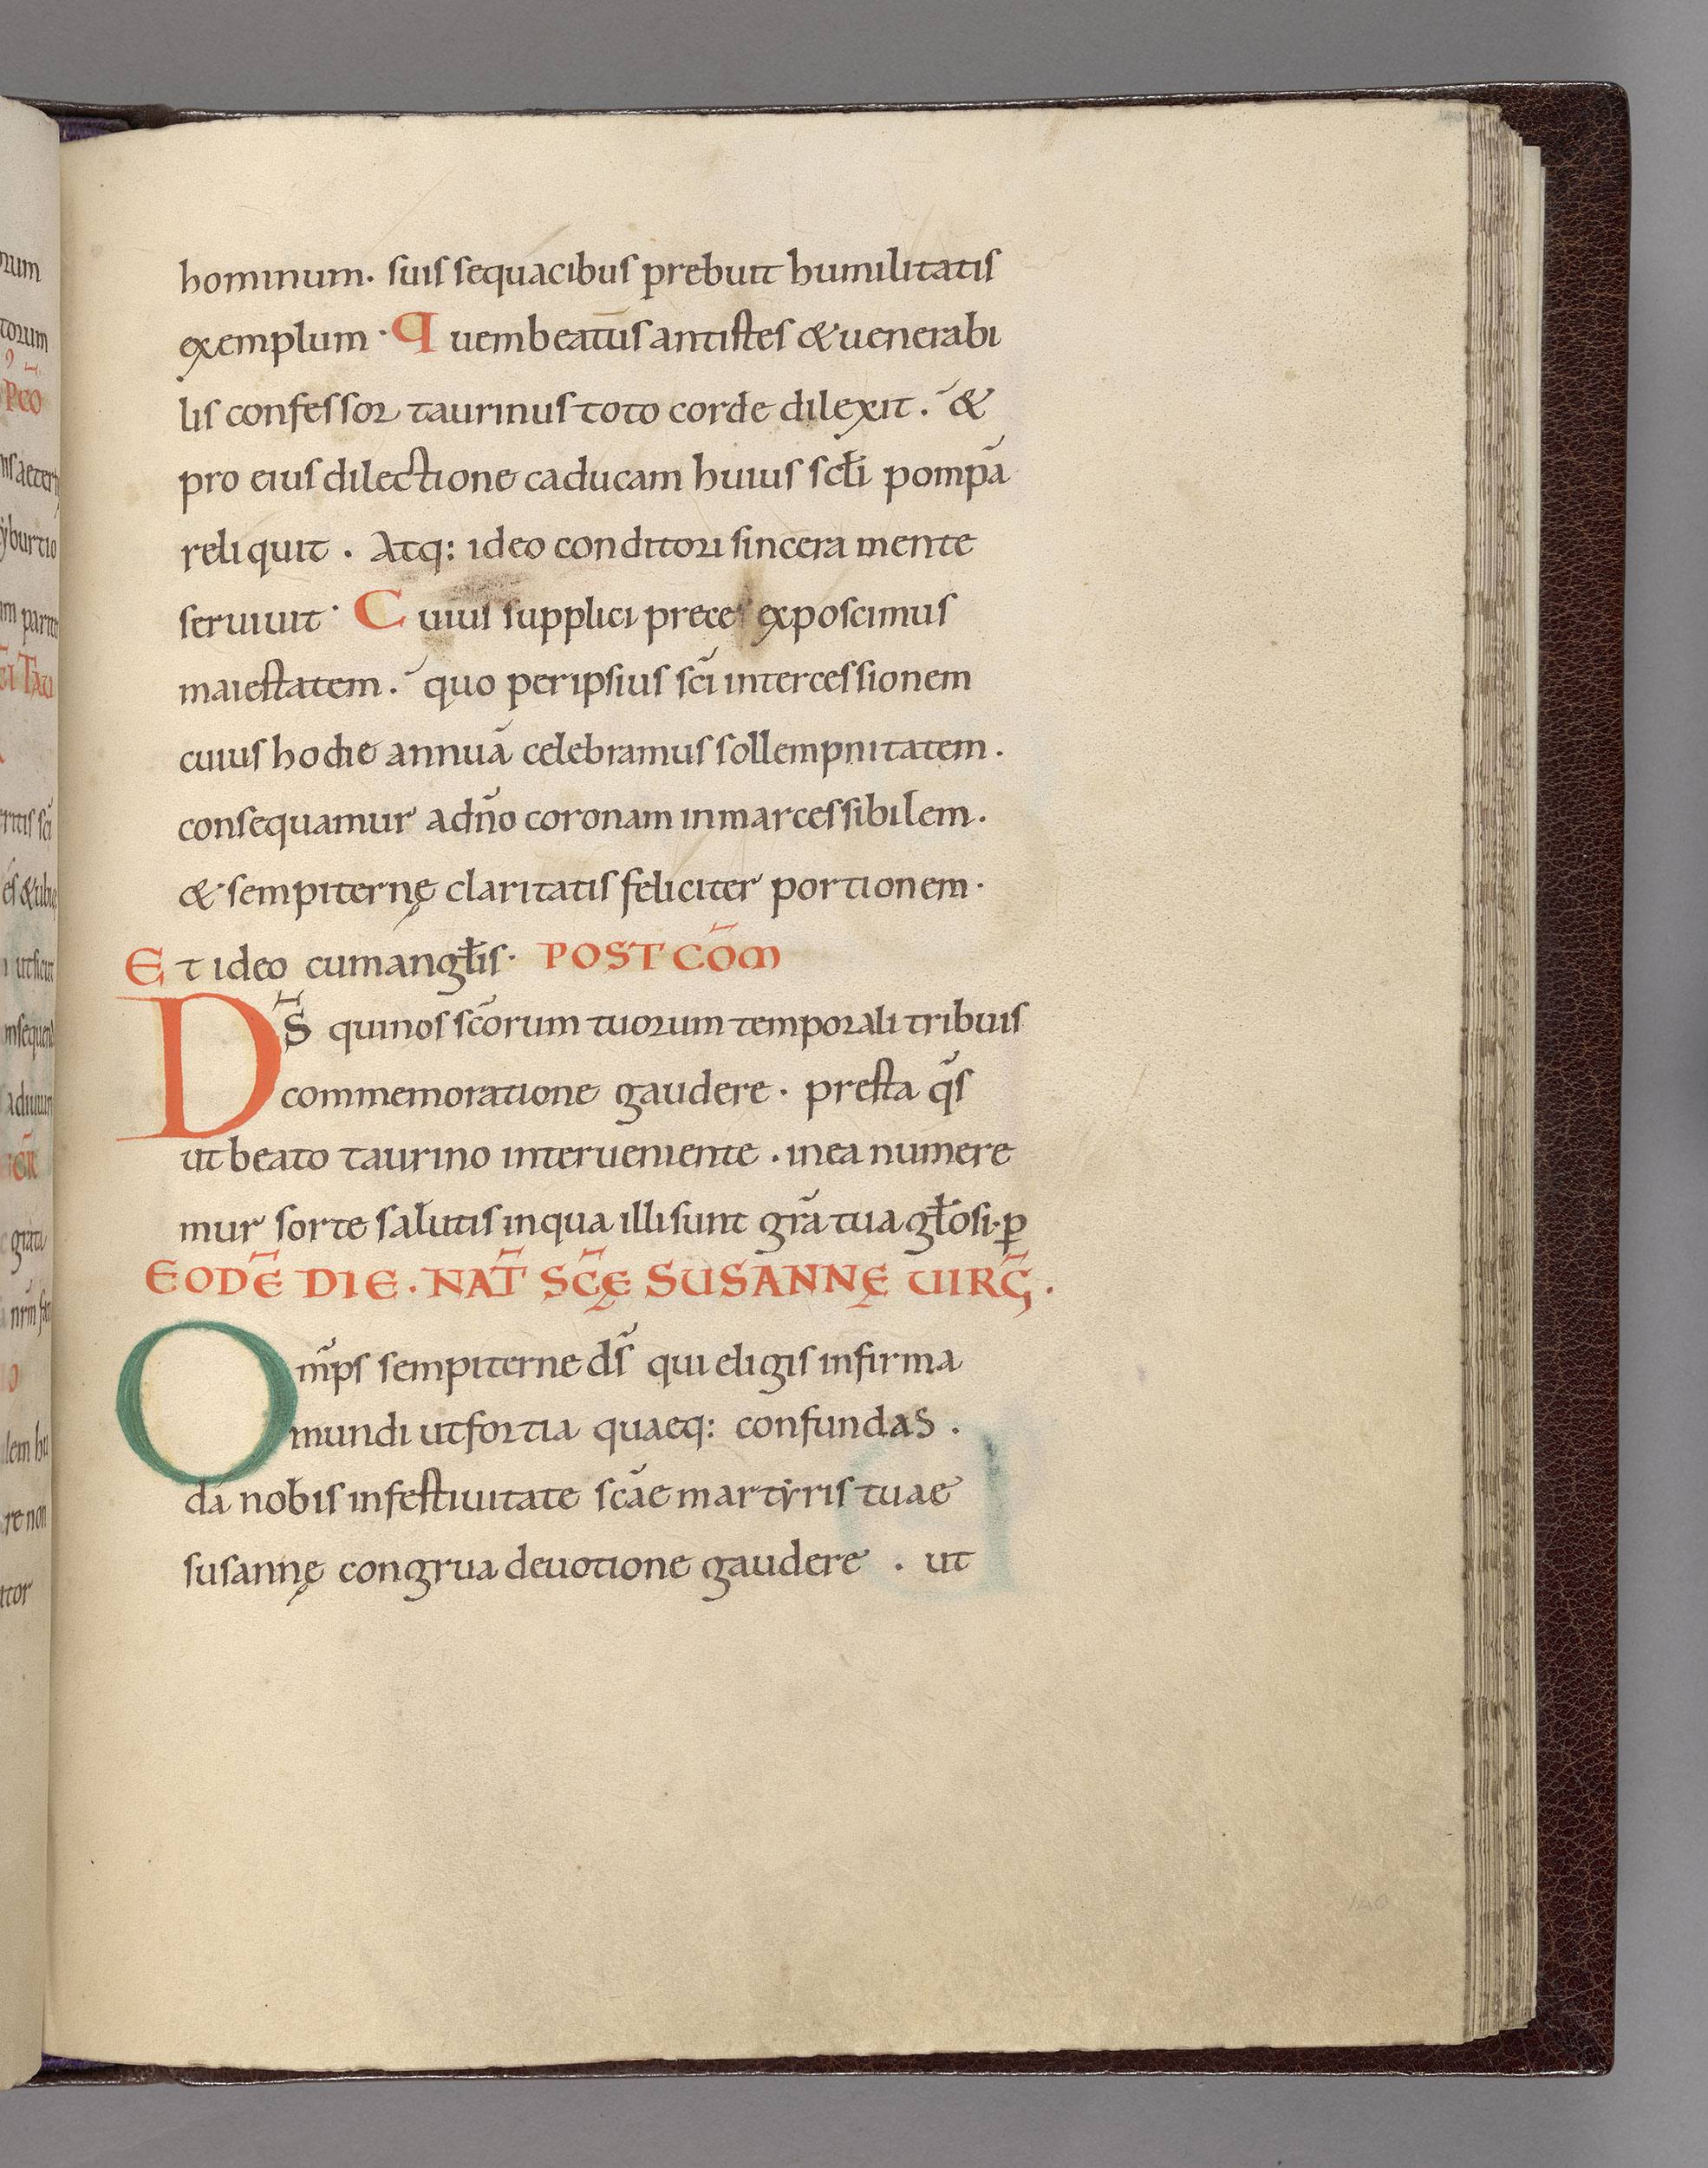 hominum. suis sequacibus prebuit humilitatis
exemplum. Quem beatus antistes & uenerabi
lis confessor taurinus toto corde dilexit. &
pro eius dilectione caducam huius scłi pompā
reliquit. Atq: ideo conditori sincera mente
seruiuit. Cuius supplici preces exposcimus
maiestatem. quo per ipsius sc̄i intercessionem
cuius hodie annuā celebramus sollempnitatem.
consequamur ad n̄o coronam inmarcessibilem.
& sempiternę claritatis feliciter portionem.
Et ideo cum angłis. POST CŌM
Ds̄ qui nos sc̄orum tuorum temporali tribuis
commemoratione gaudere. presta q̄s
ut beato taurino interueniente. in ea numere
mur sorte salutis in qua illi sunt grā tua głosi. ꝑ
EODĒ DIE. NAT̄ SC̄Ę SUSANNĘ UIRḠ.
Om̄ps sempiterne ds̄ qui eligis infirma
mundi ut fortia quaeq: confundas.
da nobis in festiuitate sc̄ae martyris tuae
susannę congrua deuotione gaudere. ut
140